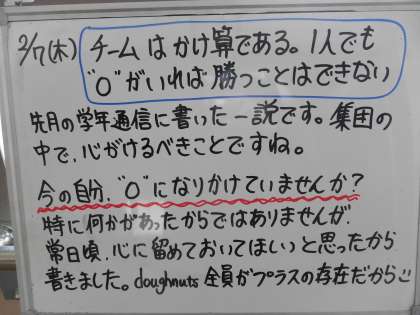 2/7(木) チームはかけ算である。1人でも
"0"がいれば勝つことはできない
先月の学年通信に書いた一説です。集団の
中で、心がけるべきことですね。
今の自分、"0"になりかけていませんか?
特に何かがあったからではありませんが、
常日頃、心に留めておいてほしいと思ったから
書きました。doughnuts 全員がプラスの存在だから